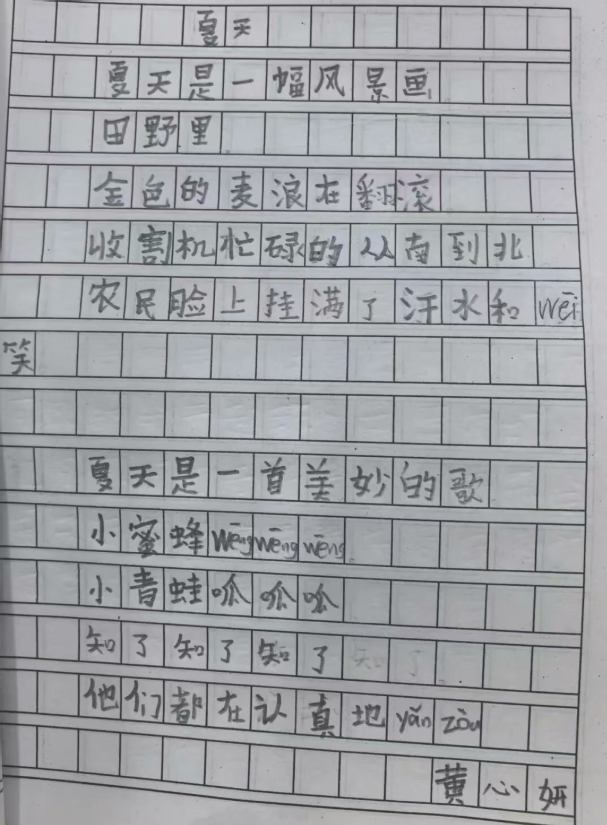 夏天
夏天是一幅风景画
田野里
金色的麦浪在翻滚
收割机忙碌的从南到北
农民脸上挂满了汗水和wēi
笑
夏天是一首美妙的歌
小蜜蜂wēngwēngwēng
小青蛙呱呱呱
知了知了知了知了
他们都在认真地yǎn zòu
黄心妍